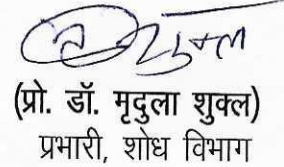 (प्रो. डॉ. मृदुला शुक्ल)
प्रभारी, शोध विभाग